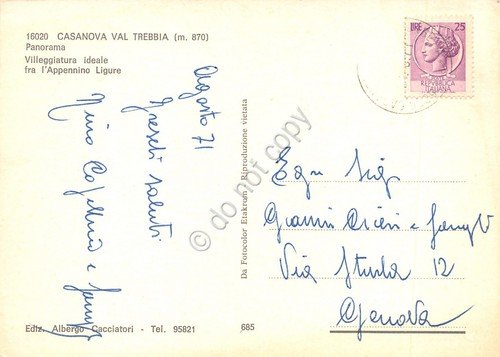 16020 CASANOVA VAL TREBBIA (m. 870)
Panorama
Villeggiatura ideale
fra l'Appennino Ligure
LIRE 25
REPVBBLICA
ITALIANA
Agosto 71
saluti
Nino e
Da Fotocolor Etakrom - Riproduzione vietata
Egr. Sig.
Gianni e
Via Sturla 12
Genova
Ediz. Albergo Cacciatori - Tel. 95821
685
do not copy